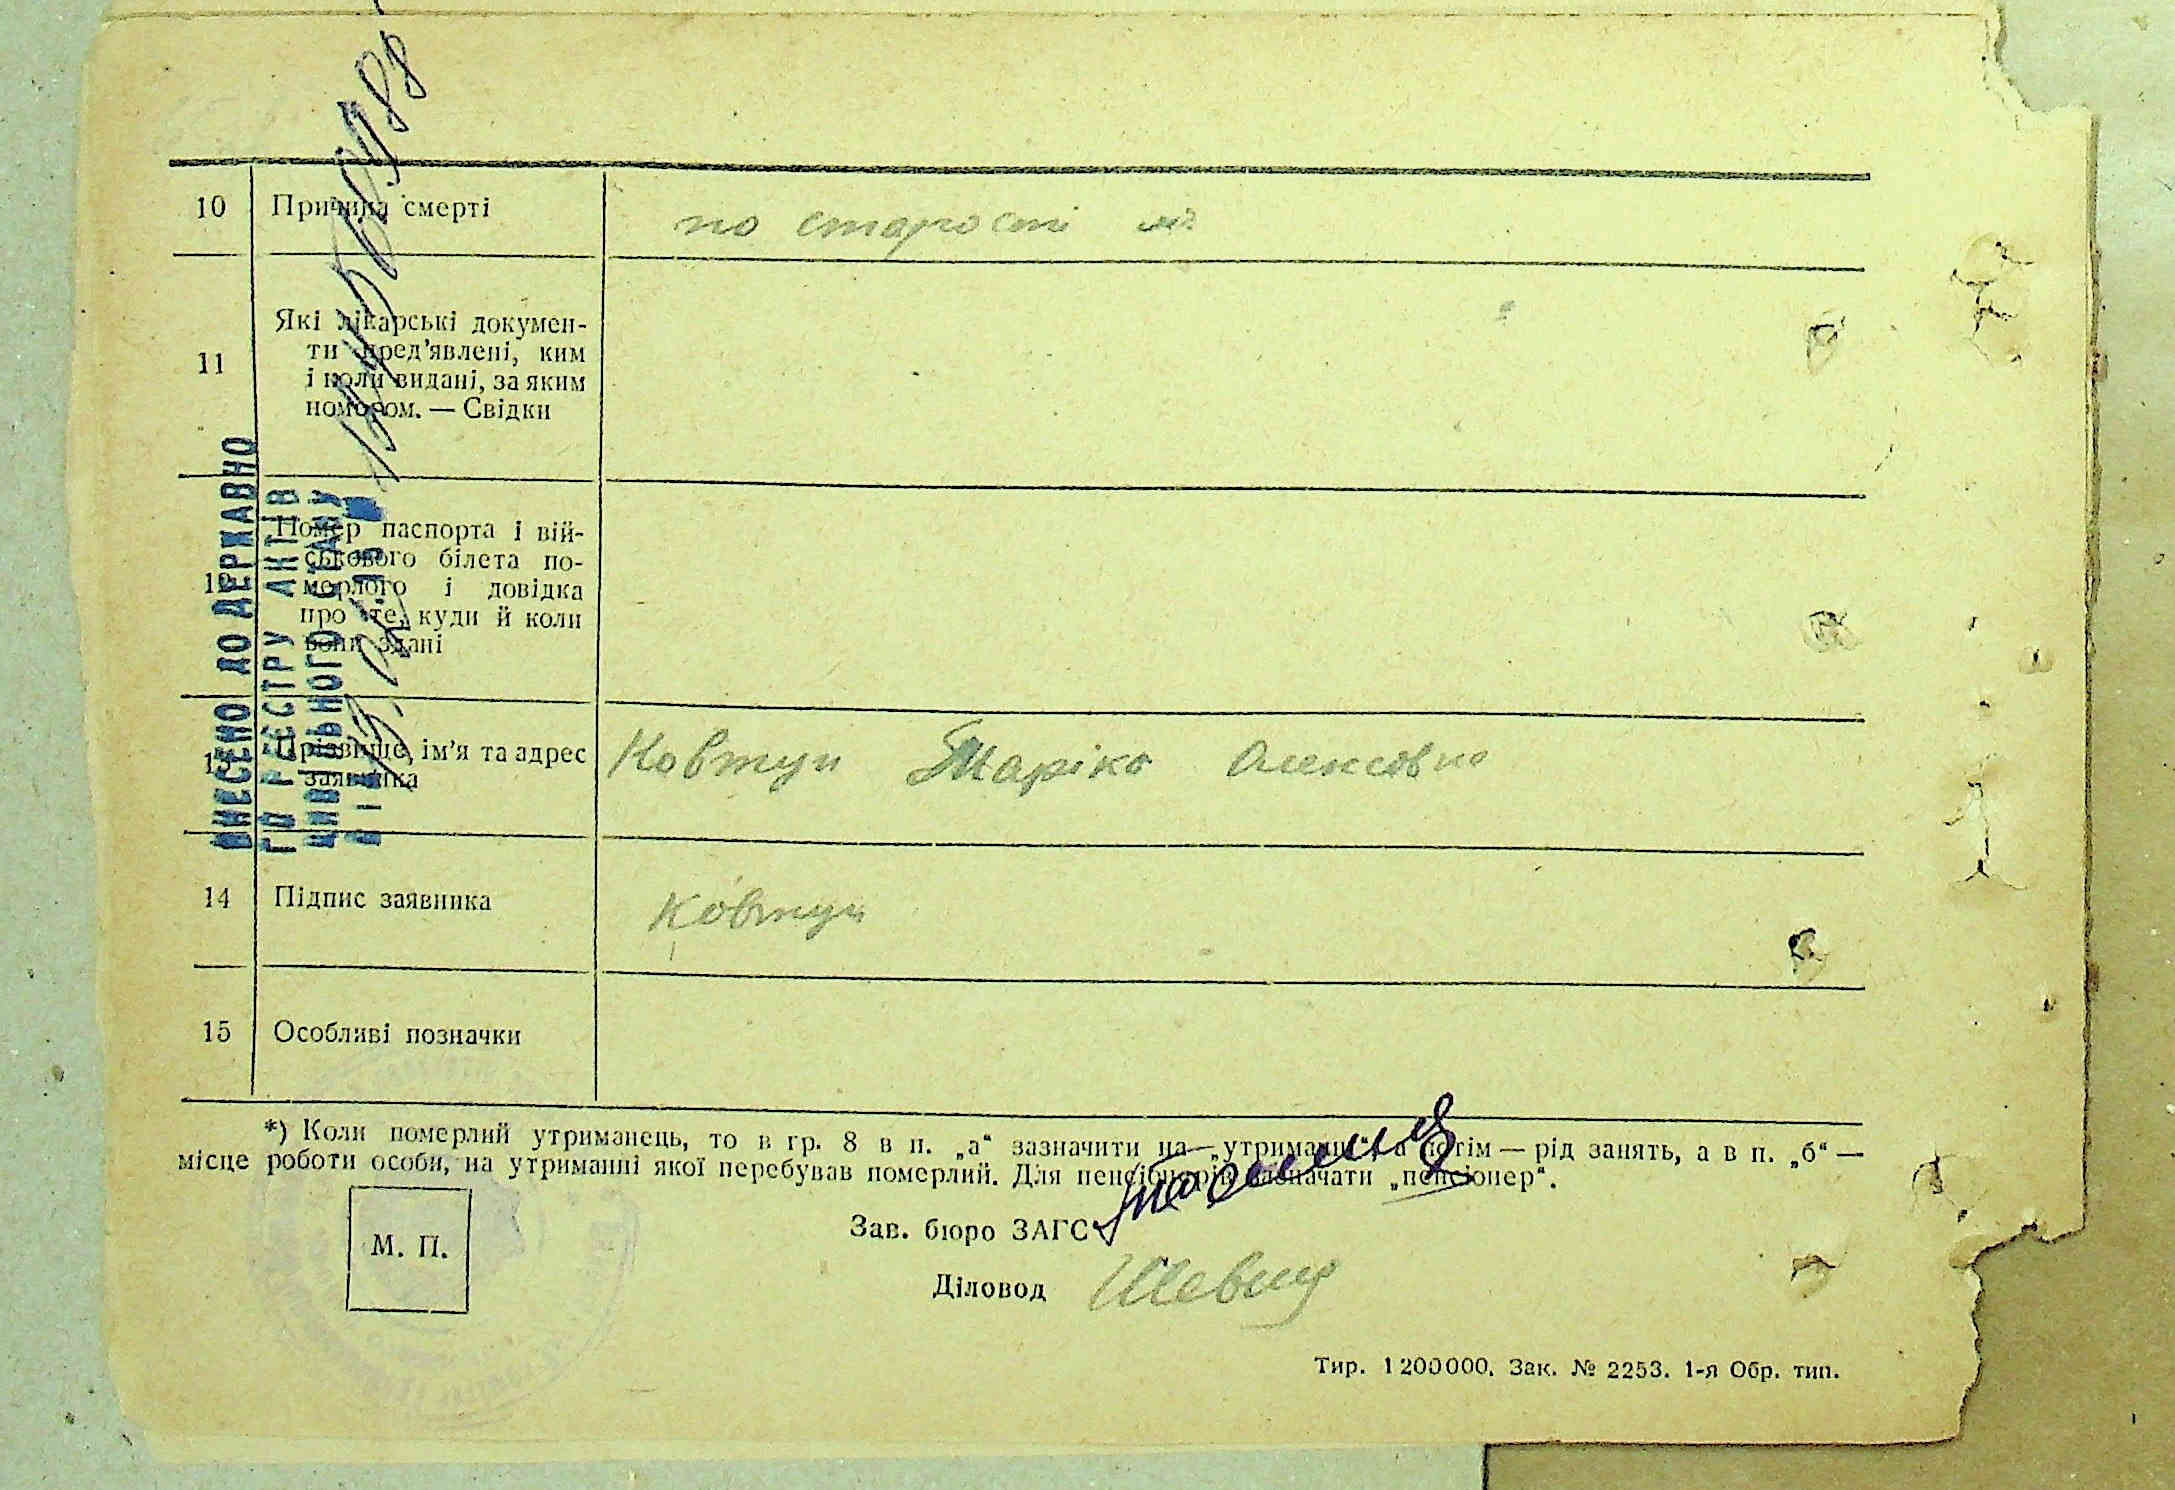 10 Причина смерті
по старості літ
11 Які лікарські докумен-
ти пред'явлені, ким
і коли видані, за яким
номером. — Свідки
12 Номер паспорта і вій-
ськового білета по-
мерлого і довідка
про те, куди й коли
вони здані
13 Прізвище, ім'я та адрес
заявника
Ковтун Маріка
14 Підпис заявника
Ковтун
15 Особливі позначки
*) Коли померлий утриманець, то в гр. 8 в п. „а“ зазначити на „утриманні“, а потім — рід занять, а в п. „б“ —
місце роботи особи, на утриманні якої перебував померлий. Для пенсіонерів зазначати „пенсіонер“.
М. П.
Зав. бюро ЗАГС
Діловод
Тир. 1200000. Зак. № 2253. 1-я Обр. тип.
ВНЕСЕНО ДО ДЕРЖАВНО
ГО РЕЄСТРУ АКТІВ
ЦИВІЛЬНОГО СТАНУ